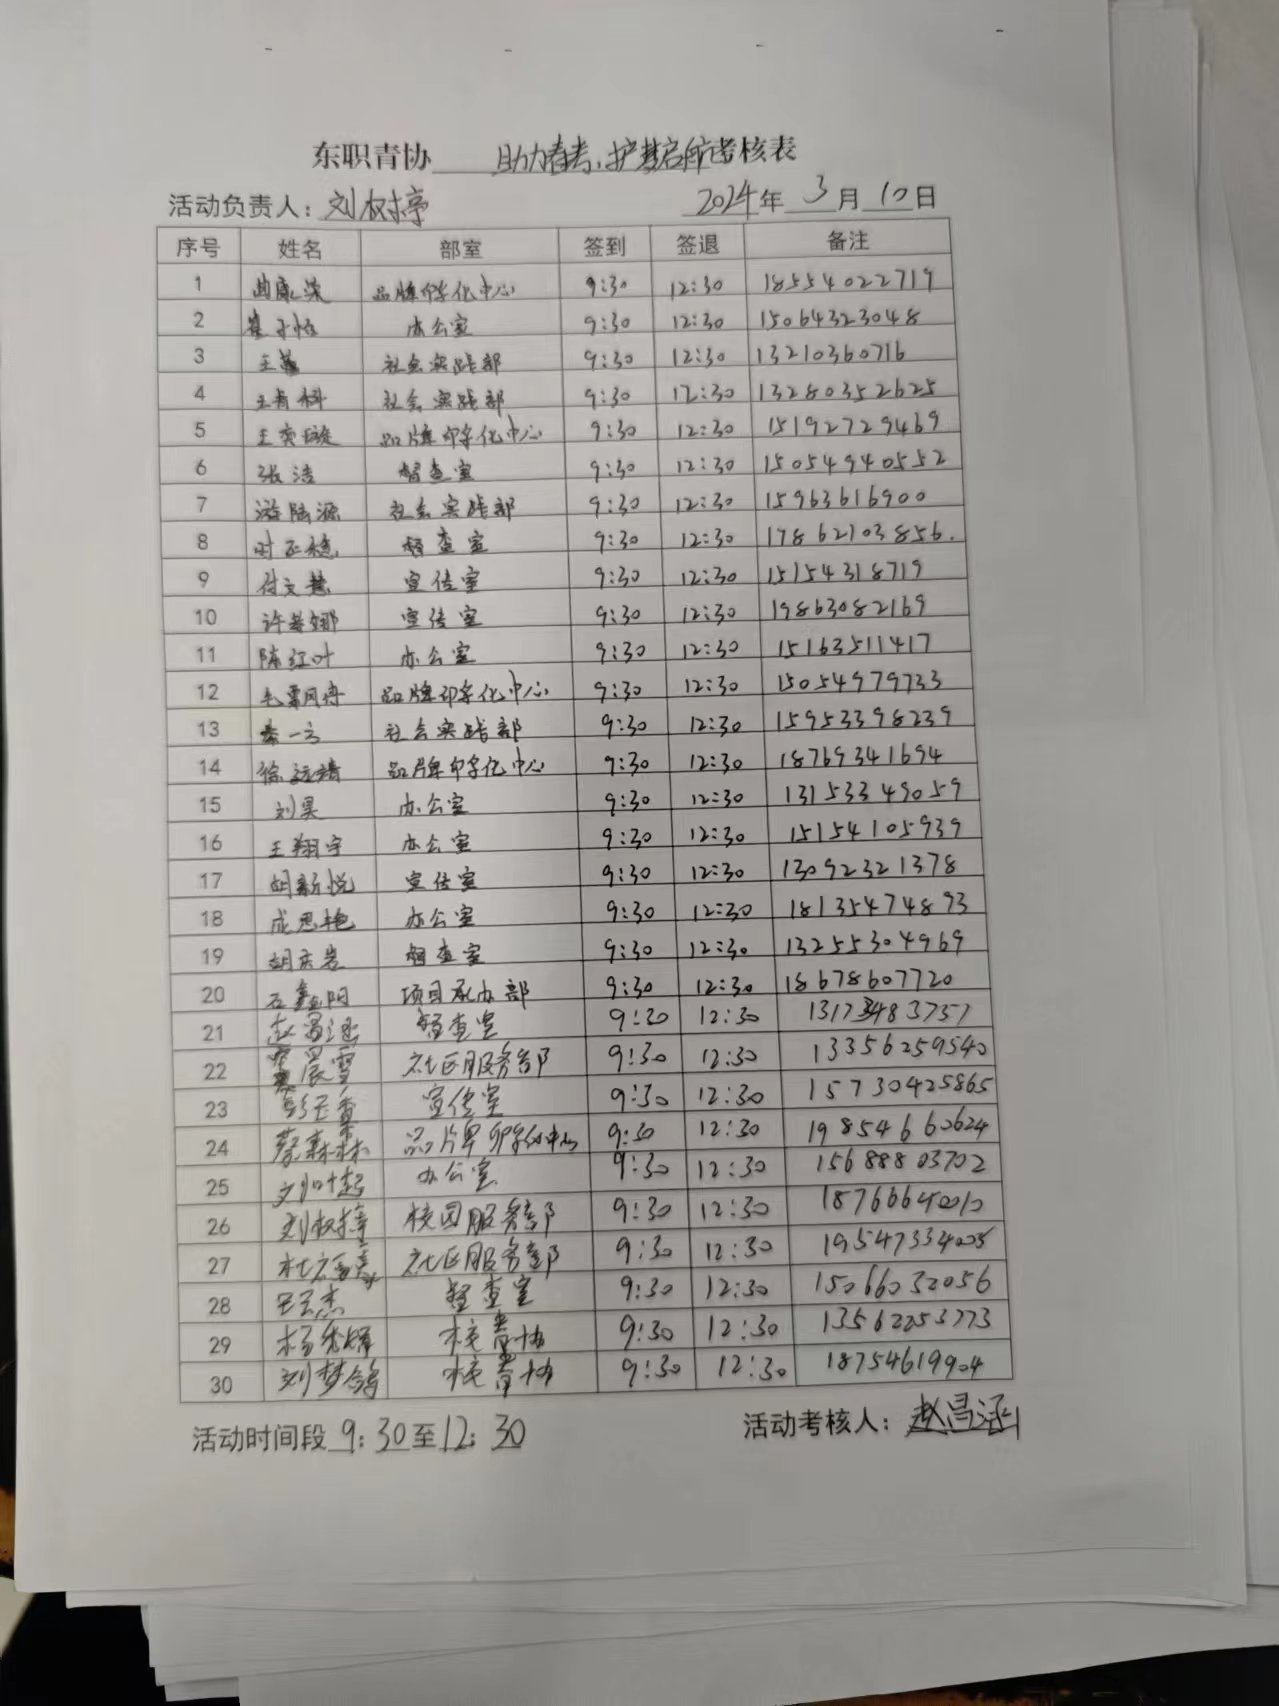 东职青协 助力春考、护梦启航考核表
活动负责人：刘树婷 2024年 3月 10日
序号 姓名 部室 签到 签退 备注
1 曲康 品牌孵化中心 9:30 12:30 18554022719
2 崔子怡 办公室 9:30 12:30 15064323048
3 王 社会实践部 9:30 12:30 13210360716
4 王有科 社会实践部 9:30 12:30 13280352625
5 王奕璇 品牌孵化中心 9:30 12:30 15192729469
6 张洁 督查室 9:30 12:30 15054940552
7 游陆源 社会实践部 9:30 12:30 15963616900
8 时正稳 督查室 9:30 12:30 17862103856.
9 付文慧 宣传室 9:30 12:30 15154318719
10 许娜 宣传室 9:30 12:30 19863082169
11 陈红叶 办公室 9:30 12:30 15163511417
12 毛 品牌孵化中心 9:30 12:30 15054979733
13 秦一方 社会实践部 9:30 12:30 15953398239
14 徐 品牌孵化中心 9:30 12:30 18769341694
15 刘昊 办公室 9:30 12:30 13153349059
16 王翔宇 办公室 9:30 12:30 15154105939
17 胡新悦 宣传室 9:30 12:30 13092321378
18 成思艳 办公室 9:30 12:30 18135474893
19 胡庆岩 督查室 9:30 12:30 13255304969
20 石鑫阳 项目承办部 9:30 12:30 18678607720
21 赵昌涵 督查室 9:30 12:30
22 晨雪 社区服务部 9:30 12:30 13356259540
23 彭 宣传室 9:30 12:30 15730425865
24 蔡森林 品牌孵化中心 9:30 12:30 19854660624
25 刘叶超 办公室 9:30 12:30 15688803702
26 刘树婷 校园服务部 9:30 12:30 18766640010
27 杜 社区服务部 9:30 12:30 19547334005
28 杰 督查室 9:30 12:30 15066032056
29 杨 校青协 9:30 12:30 13562253773
30 刘梦鸽 校青协 9:30 12:30 18754619904
活动时间段 9：30至12：30 活动考核人：赵昌涵